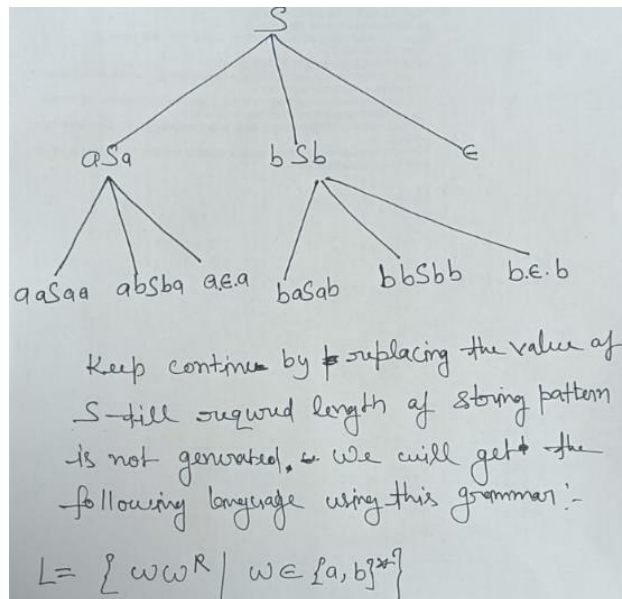 S
aSa bSb ϵ
aaSaa abSba a.ϵ.a baSab bbSbb b.ϵ.b
Keep continue by replacing the value of
S till required length of string pattern
is not generated. We will get the
following language using this grammar:-
L= { ωω^R | ω ∈ {a,b}*}